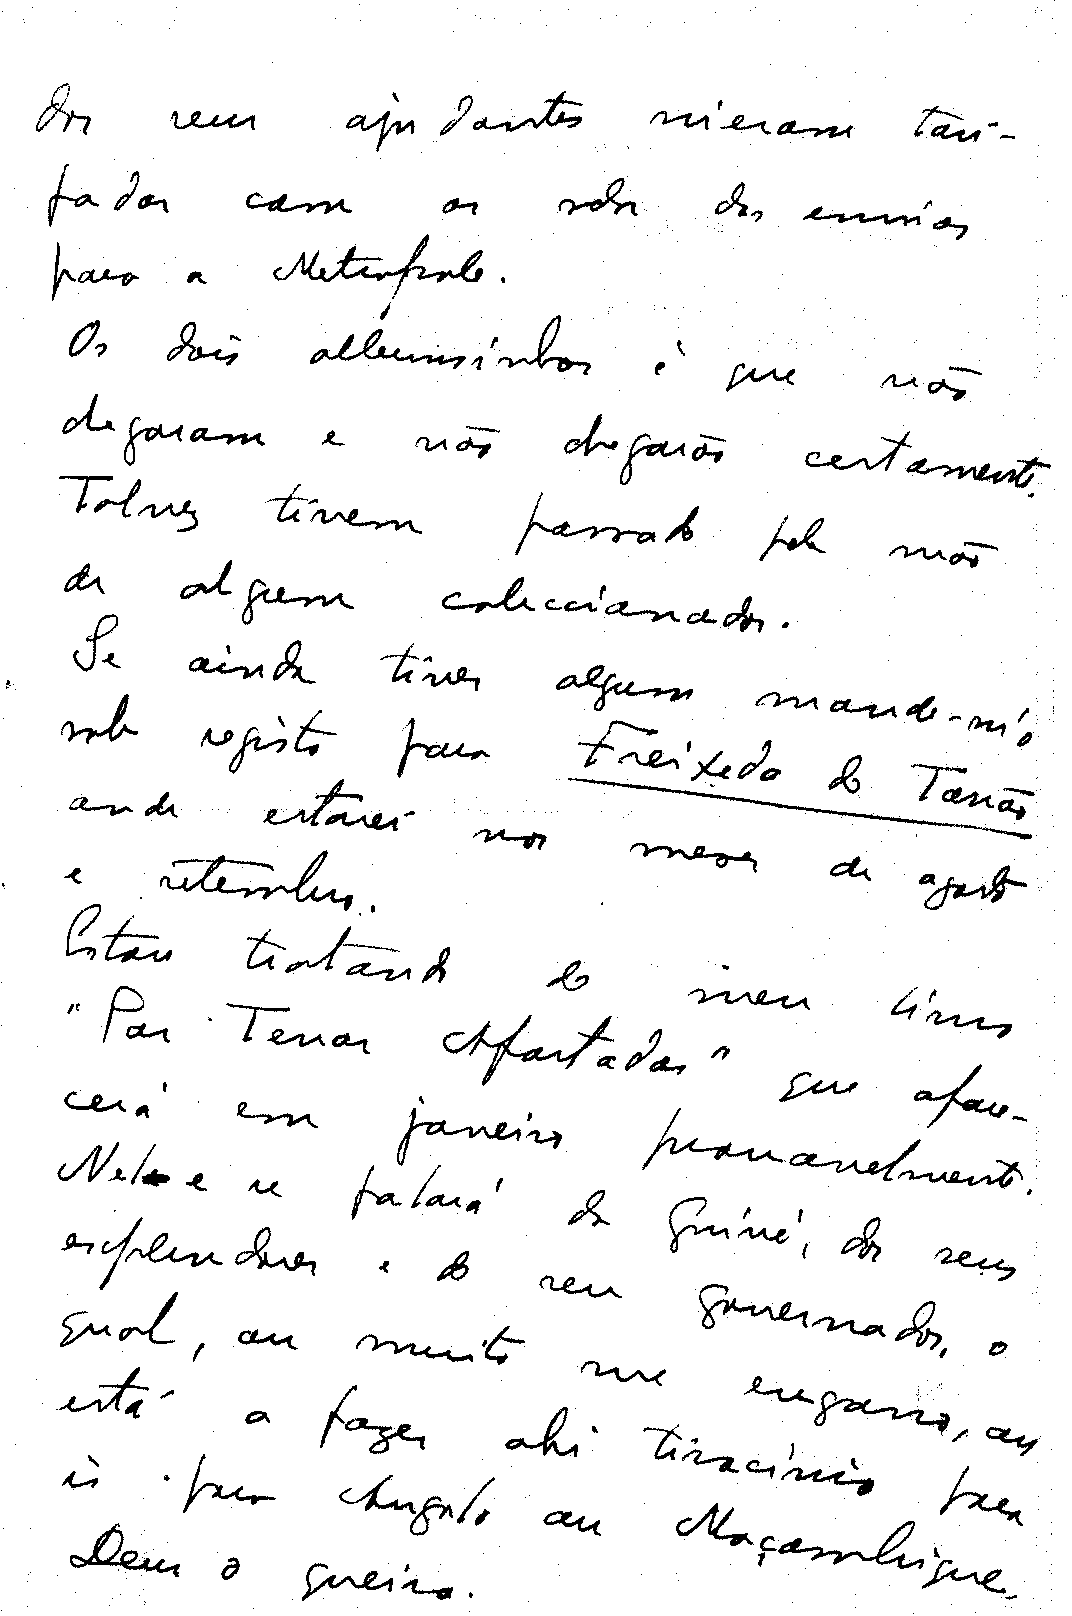 dos seus ajudantes vieram tari-
fados com os selos dos envios
para a Metropole.
Os dois albumsinhos é que não
chegaram e não chegarão certamente.
Talvez tivem passado pela mão
de algum coleccionador.
Se ainda tiver algum mande-m'o
sob registo para Freixedo do Tanão
onde estarei nos meses de agosto
e setembro.
Estou tratando do meu livro
"Por Terras Afastadas" que apare-
cerá em janeiro provavelmente.
Nele se falará da Guiné, dos seus
esplendores e do seu governador, o
qual, ou muito me engano, ou
está a fazer ahi tirocinio para
ir para Angola ou Moçambique.
Deus o queira.